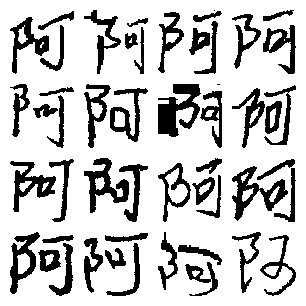 阿阿阿阿
阿阿阿阿
阿阿阿阿
阿阿阿阿